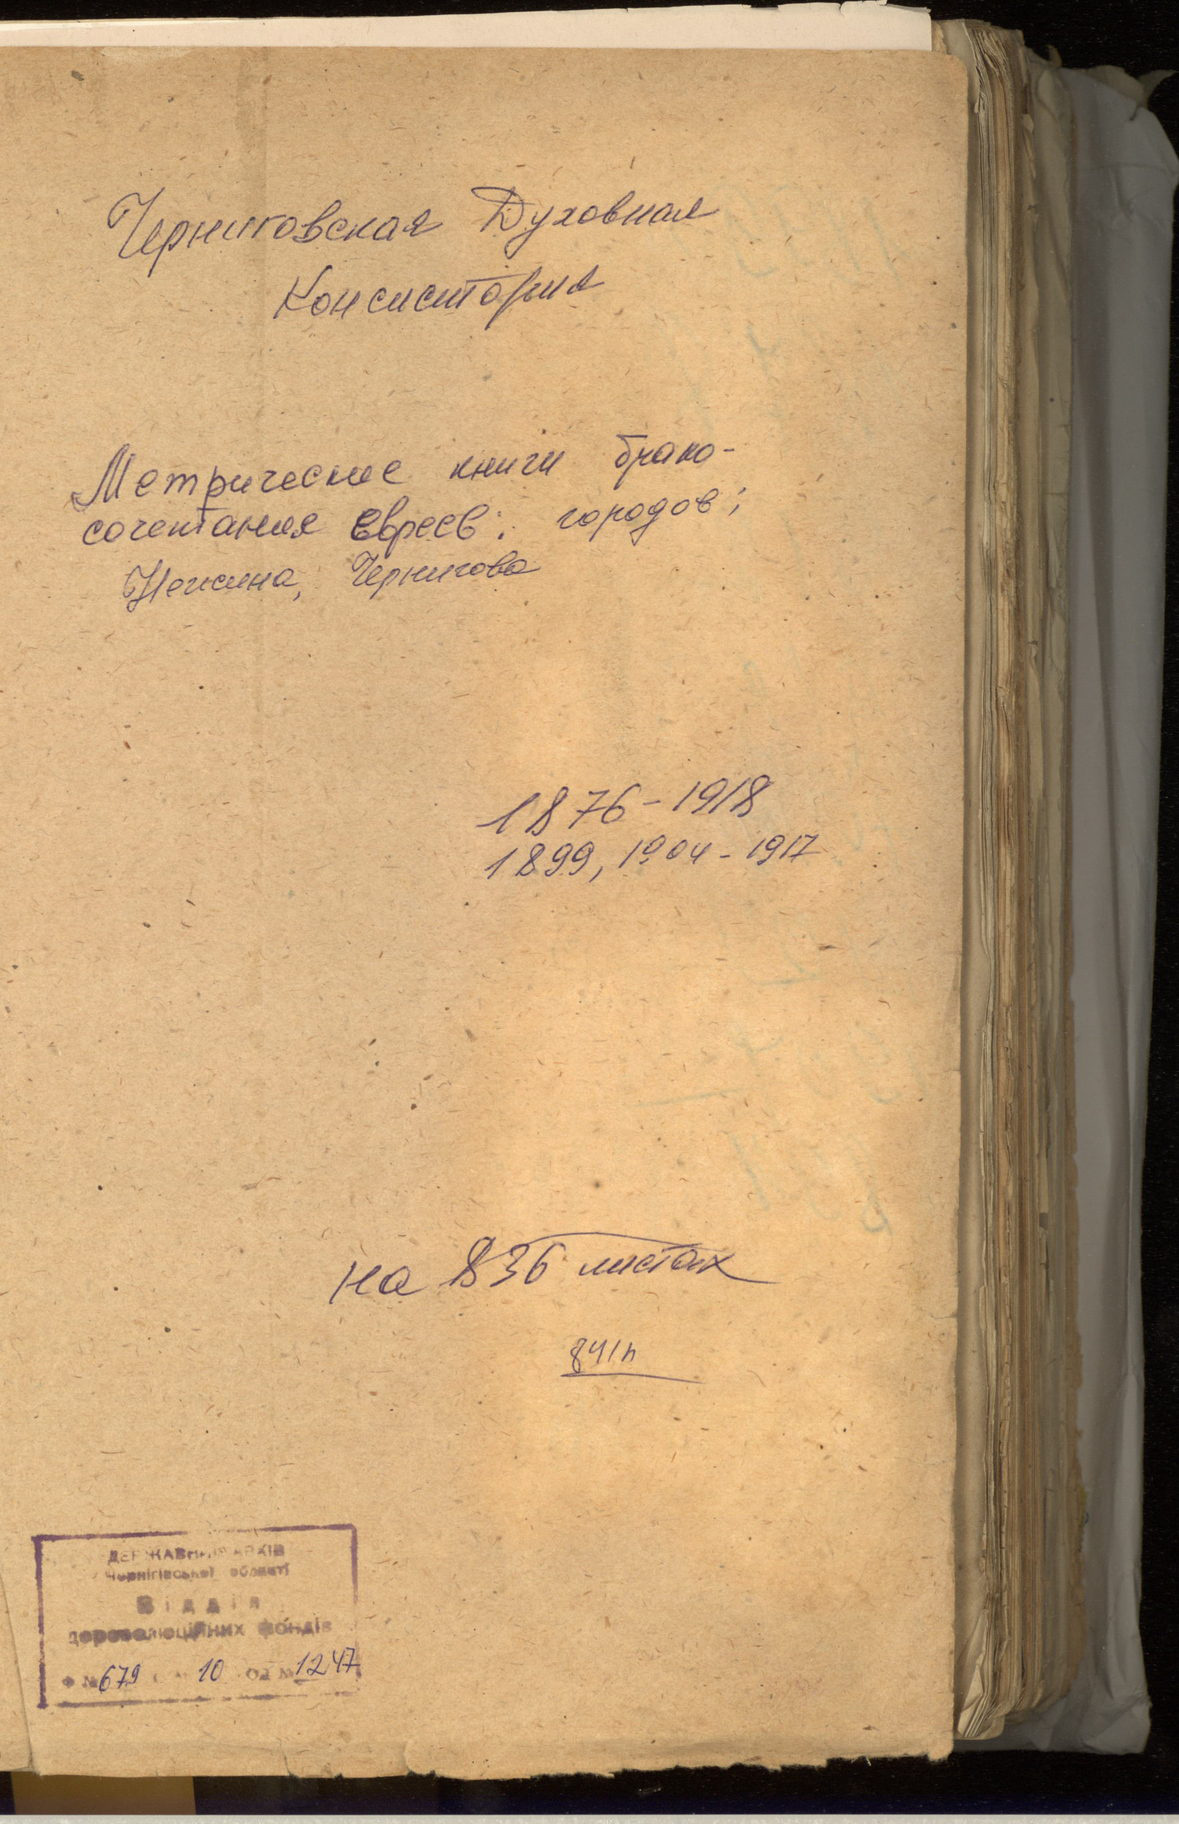 Черниговская Духовная
Консистория
Метрические книги брако-
сочетания евреев: городов;
Нежина, Чернигова
1876-1918
1899, 1904-1917
на 836 листах
841л
ДЕРЖАВНИЙ АРХІВ
Чернігівської області
Відділ
дореволюційних фондів
Ф №679 10 Од №1247